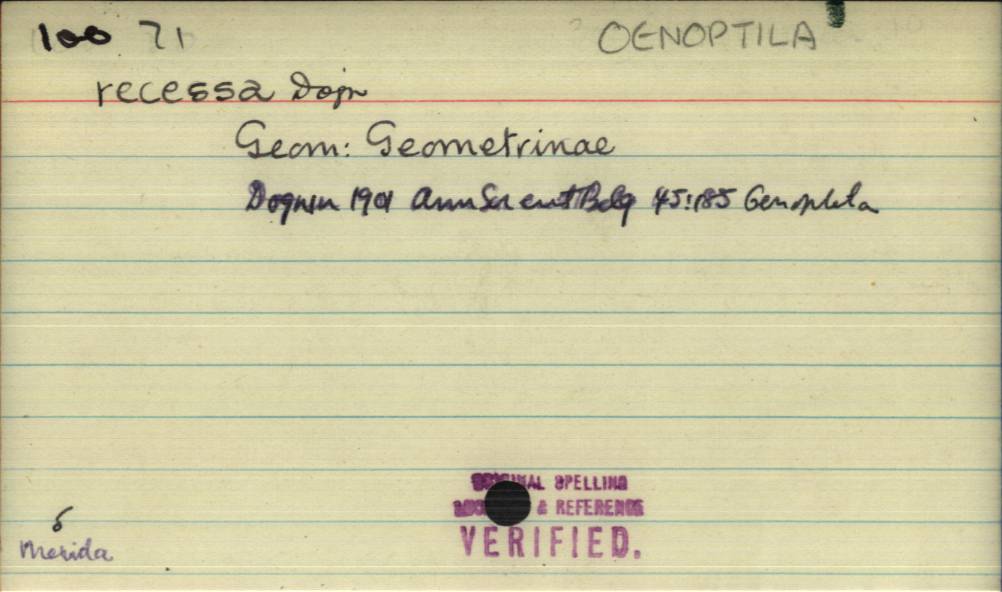 100 71 OENOPTILA
recessa Dogn
Geom: Geometrinae
Dognin 1901 Ann Soc ent Belg 45:185 Oenoptila
ORIGINAL SPELLING
& REFERENCE
VERIFIED.
♂
Merida